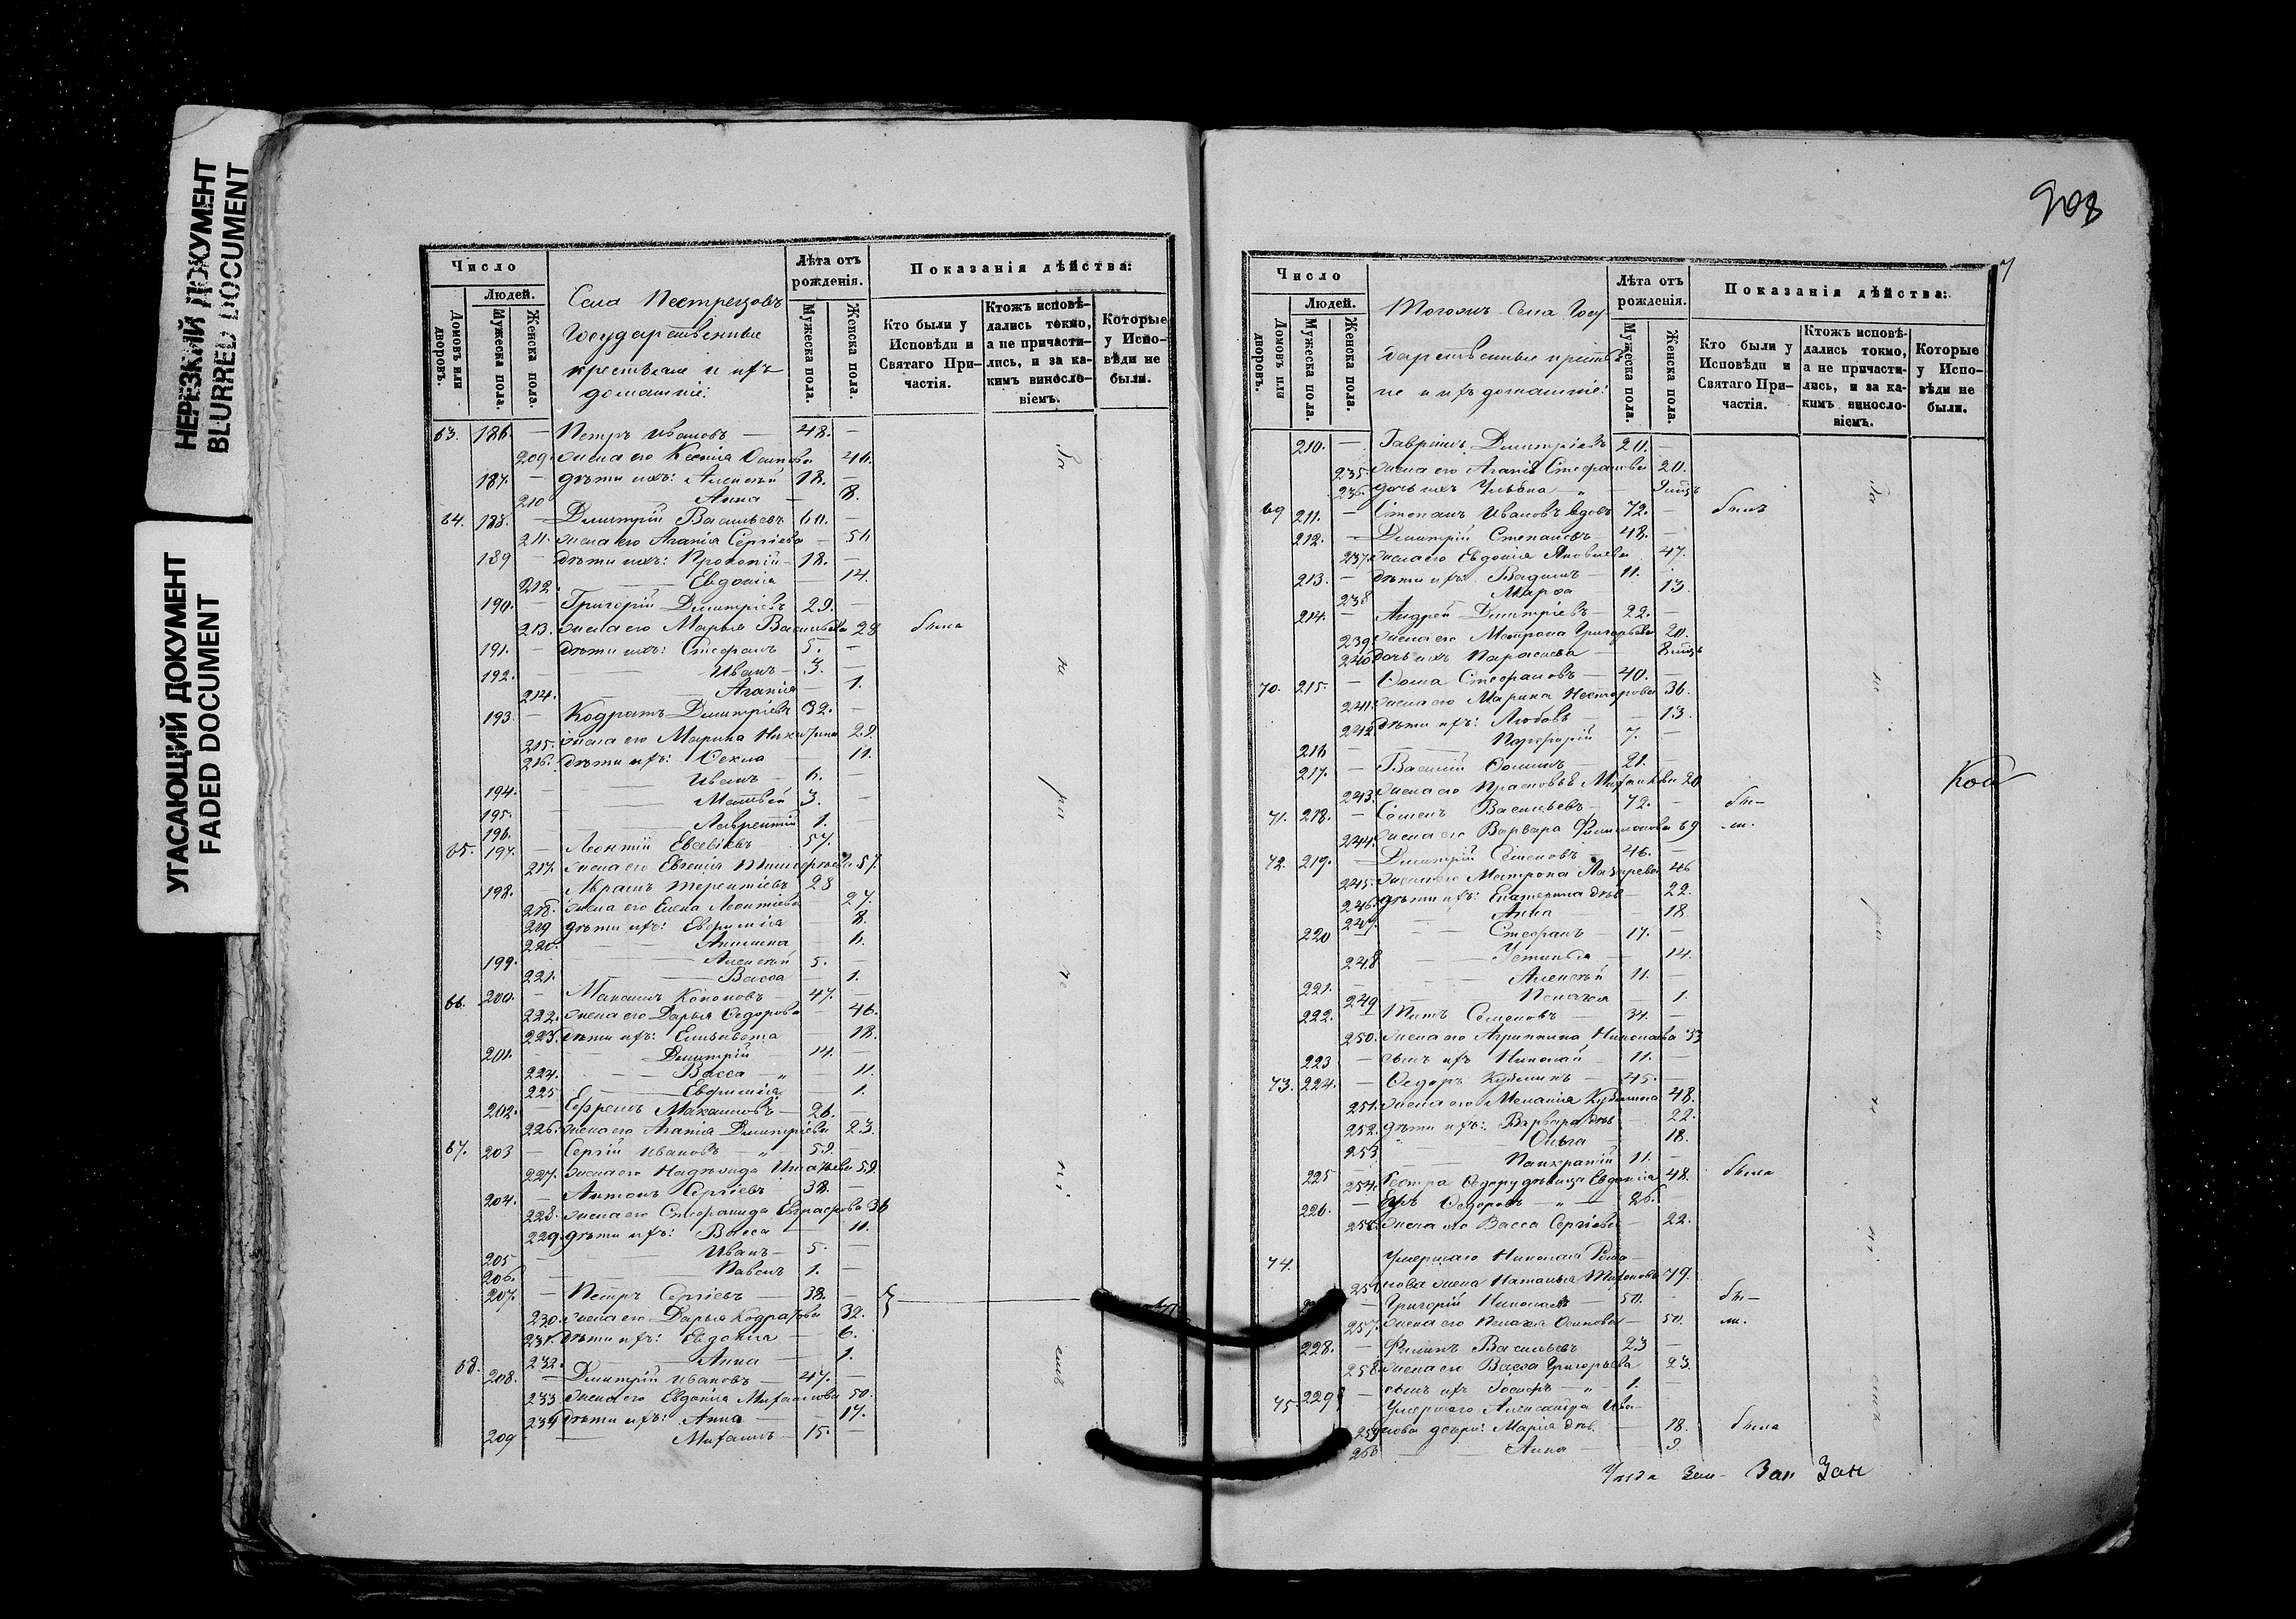 НЕРЕЗКИЙ ДОКУМЕНТ
BLURRED DOCUMENT
УГАСАЮЩИЙ ДОКУМЕНТ
FADED DOCUMENT
Число
Людей.
Домовъ или дворовъ.
Мужеска пола.
Женска пола.
Села Пестрецовъ
Государственные
крестьяне и ихъ
домашніе:
Лѣта отъ рожденія.
Мужеска пола.
Женска пола.
Показанія дѣйства:
Кто были у Исповѣди и Святаго Причастія.
Ктожъ исповѣдались токмо, а не причастились, и за какимъ винословіемъ.
Которые у Исповѣди не были.
63. 186. — Петръ Ивановъ — 48. —
209. жена его Ксенія Осипова 46.
187. — дѣти ихъ: Алексѣй 18. —
210 Анна — 8.
64. 188. — Дмитрій Васильевъ 60. —
211. жена его Агапія Сергіева — 56.
189 — дѣти ихъ: Прокопій — 18. —
212. Евдокія — 14.
190. — Григорій Дмитріевъ 29. —
213. жена его Марья Васильева 28 была
191. — дѣти ихъ: Стефанъ 5. —
192. Иванъ — 3. —
214. Агапія — 1.
193. — Кодратъ Дмитріевъ 32. —
215. жена его Марина Никитина 29.
216. дѣти ихъ: Фекла — 11.
194. Иванъ — 6. —
195. Матвей 3. —
196. Лаврентій 1. —
65. 197. — Леонтій Евсевіевъ 57.
217. жена его Евгенія 57.
198. — Абрамъ Терентіевъ 28
218. жена его Елена Леонтіева 27.
219 дѣти ихъ: Евфимія 8.
220. Акилина — 6.
199. Алексѣй 5. —
221. Васса 1.
66. 200. — Максимъ Кононовъ — 47. —
222. жена его Дарья Федорова — 46.
223. дѣти ихъ: Елисавета 18.
201. Дмитрій — 14. —
224. Васса — 11.
225 Евфимія 1.
202. — Ефремъ Максимовъ — 26. —
226. жена его Агапія Дмитріева 23.
67. 203 — Сергій Ивановъ — 59. —
227. жена его Надежда Игнатьева 59.
204. — Антонъ Сергіевъ 38. —
228. жена его Стефанида Евграфова 36
229. дѣти ихъ: Васса — 11.
205 Иванъ — 5. —
206. Павелъ 1. —
207. — Петръ Сергіевъ — 38. —
230. жена его Дарья Кодратова 32.
231. дѣти ихъ: Евдокія — 6.
232. Анна — 1.
68. 208. — Дмитрій Ивановъ — 47. —
233 жена его Евдокія Михаилова 50.
234 дѣти ихъ: Анна — 17.
209 Михаилъ — 15. —
908
7
Число
Людей.
Домовъ или дворовъ.
Мужеска пола.
Женска пола.
Тогожъ Села Госу
дарственные крестья
не и ихъ домашніе:
Лѣта отъ рожденія.
Мужеска пола.
Женска пола.
Показанія дѣйства:
Кто были у Исповѣди и Святаго Причастія.
Ктожъ исповѣдались токмо, а не причастились, и за какимъ винословіемъ.
Которые у Исповѣди не были.
210. — Гавріилъ Дмитріевъ 20. —
235. жена его Агапія Стефанова 20.
236. дочь ихъ Ульяна — 9 мцъ
69 211. — Степанъ Ивановъ вдовъ 72. — былъ
212. — Дмитрій Степановъ — 48. —
237. жена его Евдокія Яковлева 47.
213. — дѣти ихъ: Вадимъ — 11.
238 Марфа 13.
214. — Андрей Дмитріевъ — 22. —
239 жена его Матрона Григорьева 20.
240 дочь ихъ Парасева — 8 мцъ
70. 215. — Фома Стефановъ — 40.
241. жена его Марина Несторова 36.
242 дѣти ихъ: Любовь — 13.
216 Порфирій — 7. —
217. — Василій Фоминъ — 21. —
243. жена его Прасковья Михаил. 20
71. 218. — Семенъ Васильевъ — 72. — бы-
244. жена его Варвара Филимонова 69 ли.
72. 219. — Дмитрій Семеновъ — 46. —
245. жена его Матрона Лазарева 46
246. дѣти ихъ: Екатерина дѣв 22.
247. Анна — 18
220 Стефанъ — 17. —
248 Устинья — 14.
221. Алексѣй 11. —
249 Пелагея — 1.
222. — Титъ Семеновъ — 34. —
250. жена его Агриппина Николаева 33
223 — сынъ ихъ Николай — 11. —
73. 224. — Федоръ Кузминъ — 45. —
251. жена его Меланія Кузмина 48.
252. дѣти ихъ: Варвара дѣв 22.
253 Ольга — 18.
225 Панкратій 11. —
254. Сестра Федору дѣвица Евдокія 48. была
226. — Егоръ Федоровъ — 26. —
255. жена его Васса Сергіева — 22.
74. Умершаго Николая Рома-
256 нова жена Наталья 79.
— Григорій Николаевъ — 50. бы-
257. жена его Пелагея Осипова — 50. ли.
228. — Филипъ Васильевъ 23 —
258 жена его Васса Григорьева 23.
75. 229 — сынъ ихъ Іосифъ — 1. —
Умершаго Александра Ива-
259 нова дочери: Марія дѣв. — 18. была
260 Анна — 9.
Кой